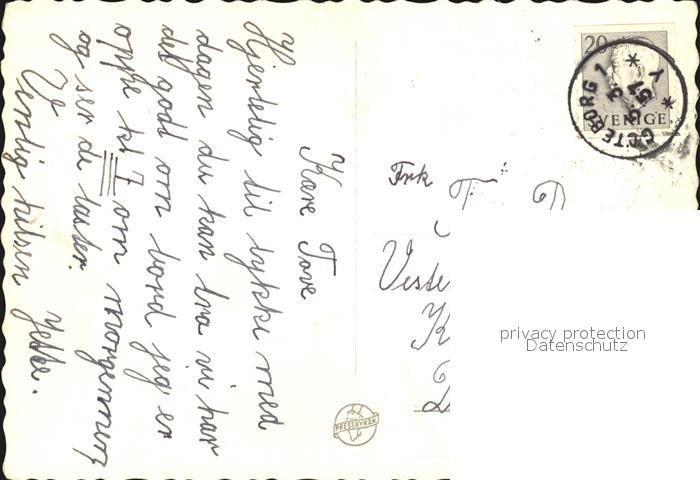 Kære Tove
Hjertelig til lykke med
dagen du kan tro vi har
det godt om bord jeg er
oppe kl 7 om morgenen
og ser de laster.
Venlig hilsen Jette.
Frk
T D
Veste
K
D
20
SVERIGE
GÖTEBORG 1
PRESSBYRÅN
privacy protection
Datenschutz